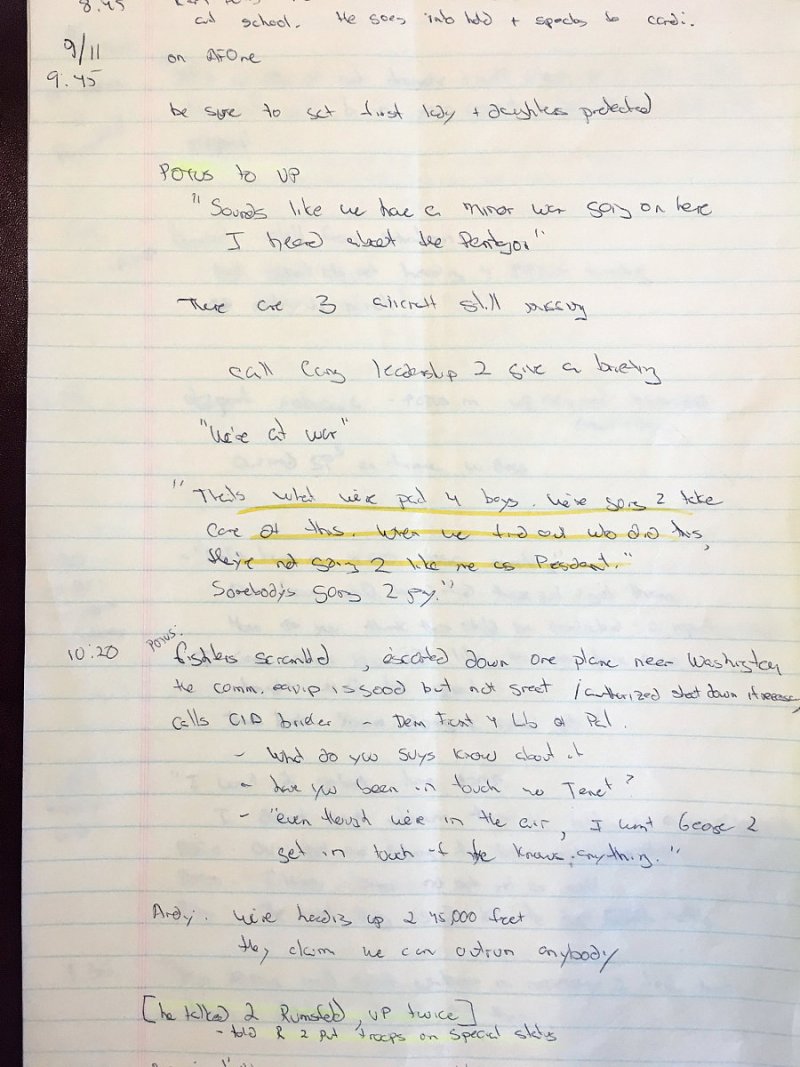 8.45
at school. He goes into hold + speaks to Condi.
9/11
9.45
on AFOne
be sure to get first lady + daughters protected
POTUS to VP
"Sounds like we have a minor war going on here
I heard about the Pentagon"
There are 3 aircraft still missing
call Cong leadership 2 give a briefing
"We're at war"
"That's what we're paid 4 boys. We're going 2 take
care of this. When we find out who did this,
they're not going 2 like me as President."
Somebody's going 2 pay."
10:20
POTUS:
fighters scrambled, escorted down one plane near Washington
the comm. equip is good but not great / authorized shot down if necessary
calls CIA briefer - Dem Front 4 Lib of Pal.
- What do you guys know about it
- have you been in touch w Tenet?
- "even though we're in the air, I want George 2
get in touch if he knows anything."
Andy: We're heading up 2 45,000 feet
they claim we can outrun anybody
[he talked 2 Rumsfeld, VP twice]
- told R 2 put troops on special status